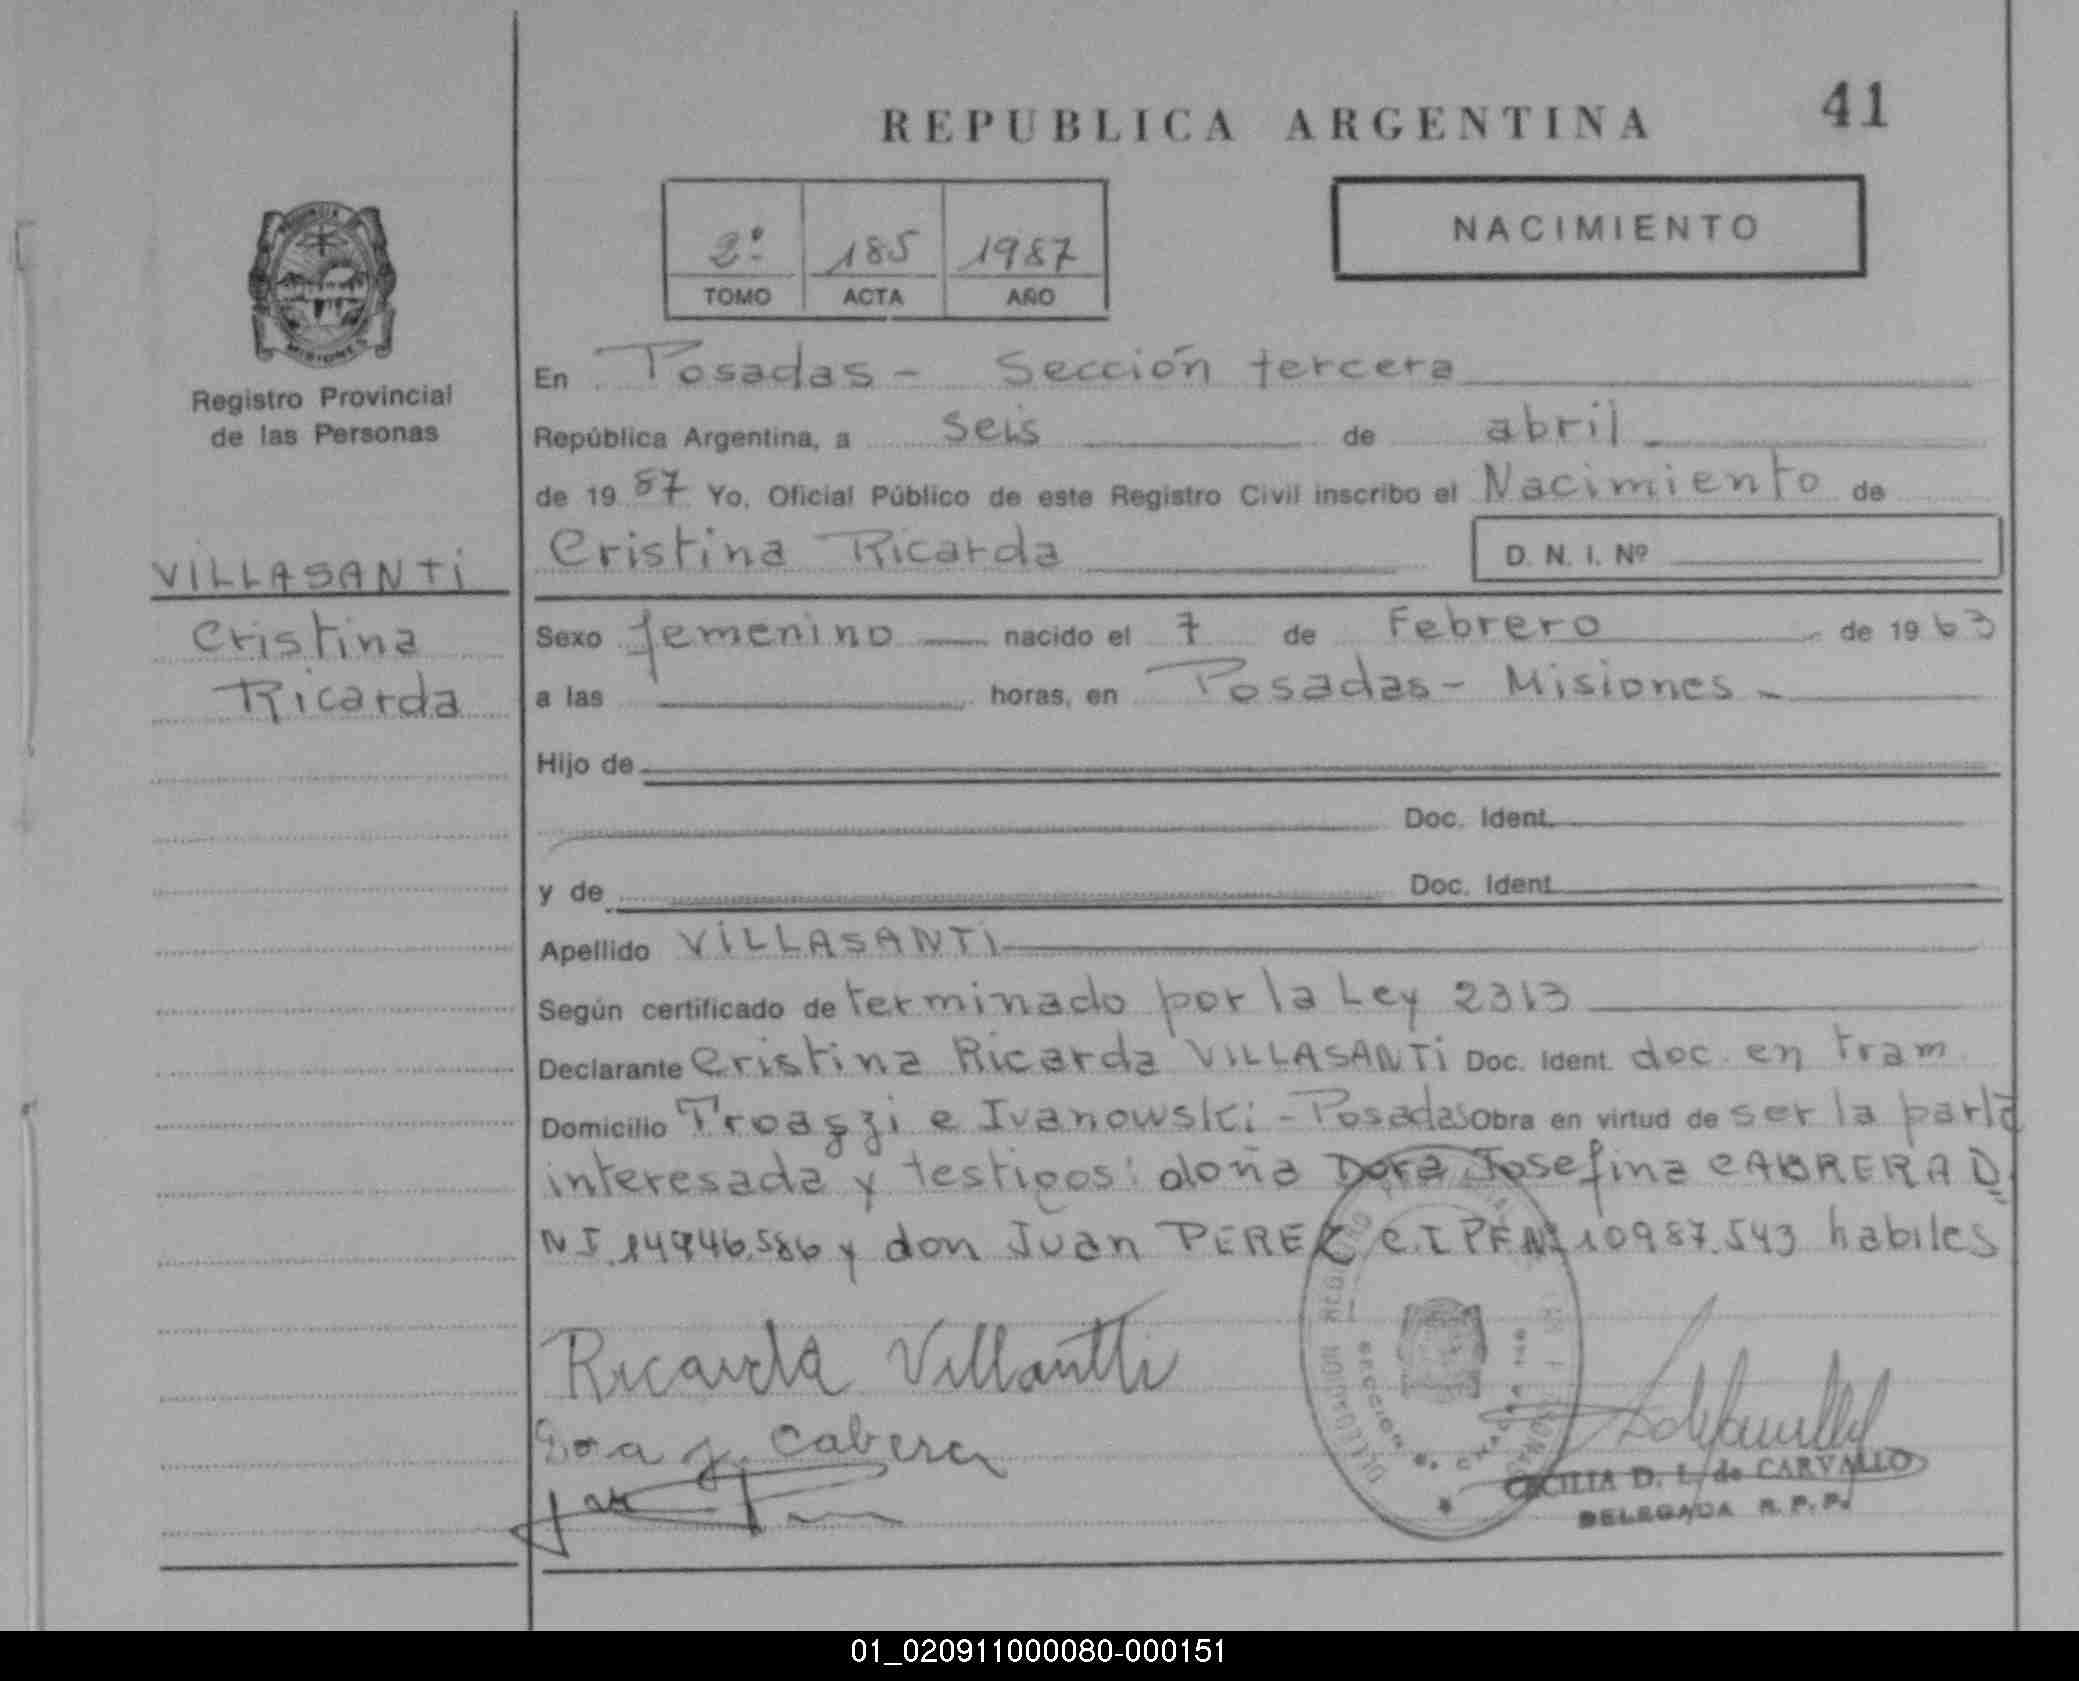 REPUBLICA ARGENTINA 41
2º 185 1987
TOMO ACTA AÑO
NACIMIENTO
MISIONES
Registro Provincial
de las Personas
VILLASANTI
Cristina
Ricarda
En Posadas - Sección tercera
República Argentina, a seis de abril
de 19 87 Yo, Oficial Público de este Registro Civil inscribo el Nacimiento de
Cristina Ricarda D. N. I. Nº
Sexo femenino nacido el 7 de Febrero de 19 63
a las horas, en Posadas - Misiones -
Hijo de
Doc. Ident.
y de Doc. Ident.
Apellido VILLASANTI
Según certificado de terminado por la Ley 2313
Declarante Cristina Ricarda VILLASANTI Doc. Ident. doc. en tram
Domicilio e Ivanowski - Posadas Obra en virtud de ser la parte
interesada y testigos: doña Dora Josefina CABRERA D.
N I. 14946.586 y don Juan PEREZ C.I PFNº 10987.543 habiles
Ricarda Villantti
J. Cabera
CECILIA D. L. de CARVALLO
DELEGADA R. P. P.
01_020911000080-000151